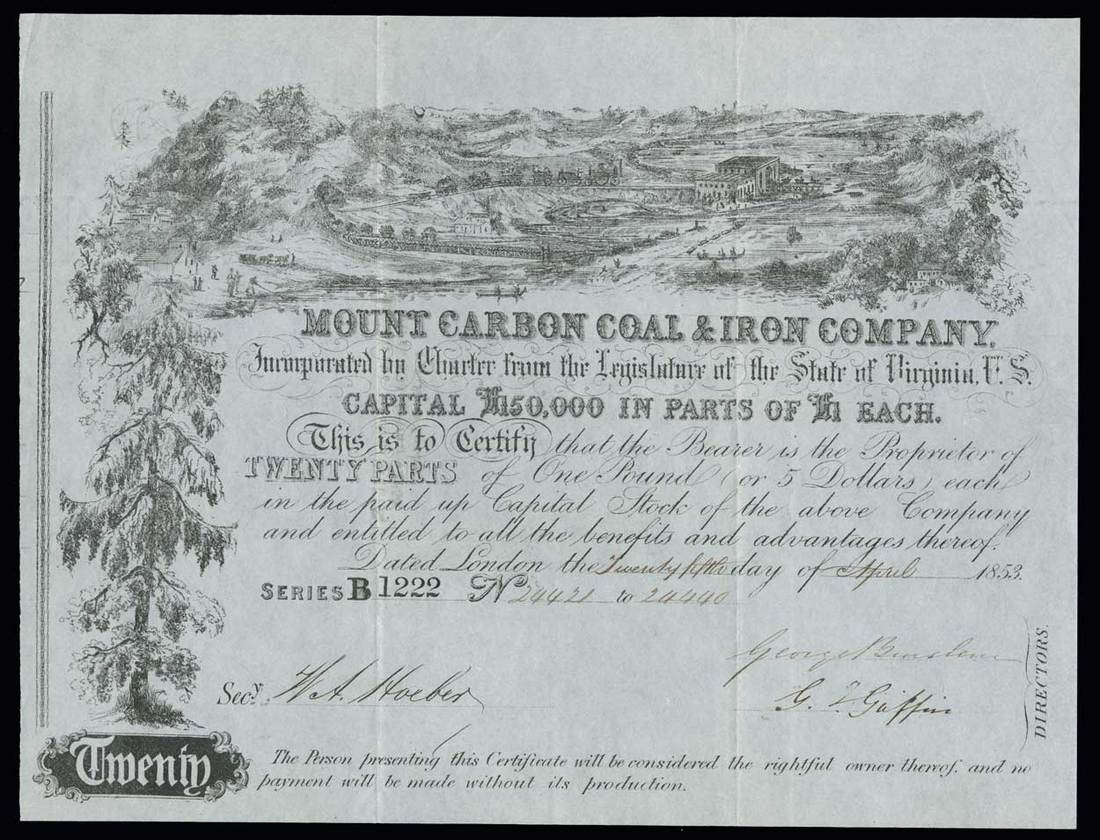 MOUNT CARBON COAL & IRON COMPANY,
Incorporated by Charter from the Legislature of the State of Virginia, U.S.
CAPITAL £150,000 IN PARTS OF £1 EACH.
This is to Certify that the Bearer is the Proprietor of
TWENTY PARTS of One Pound (or 5 Dollars) each
in the paid up Capital Stock of the above Company
and entitled to all the benefits and advantages thereof.
Dated London the Twenty fifth day of April 1853.
SERIES B 1222 No 24421 to 24440
George
Secy. W. A. Hoeber
G. Griffin
DIRECTORS.
Twenty
The Person presenting this Certificate will be considered the rightful owner thereof. and no
payment will be made without its production.